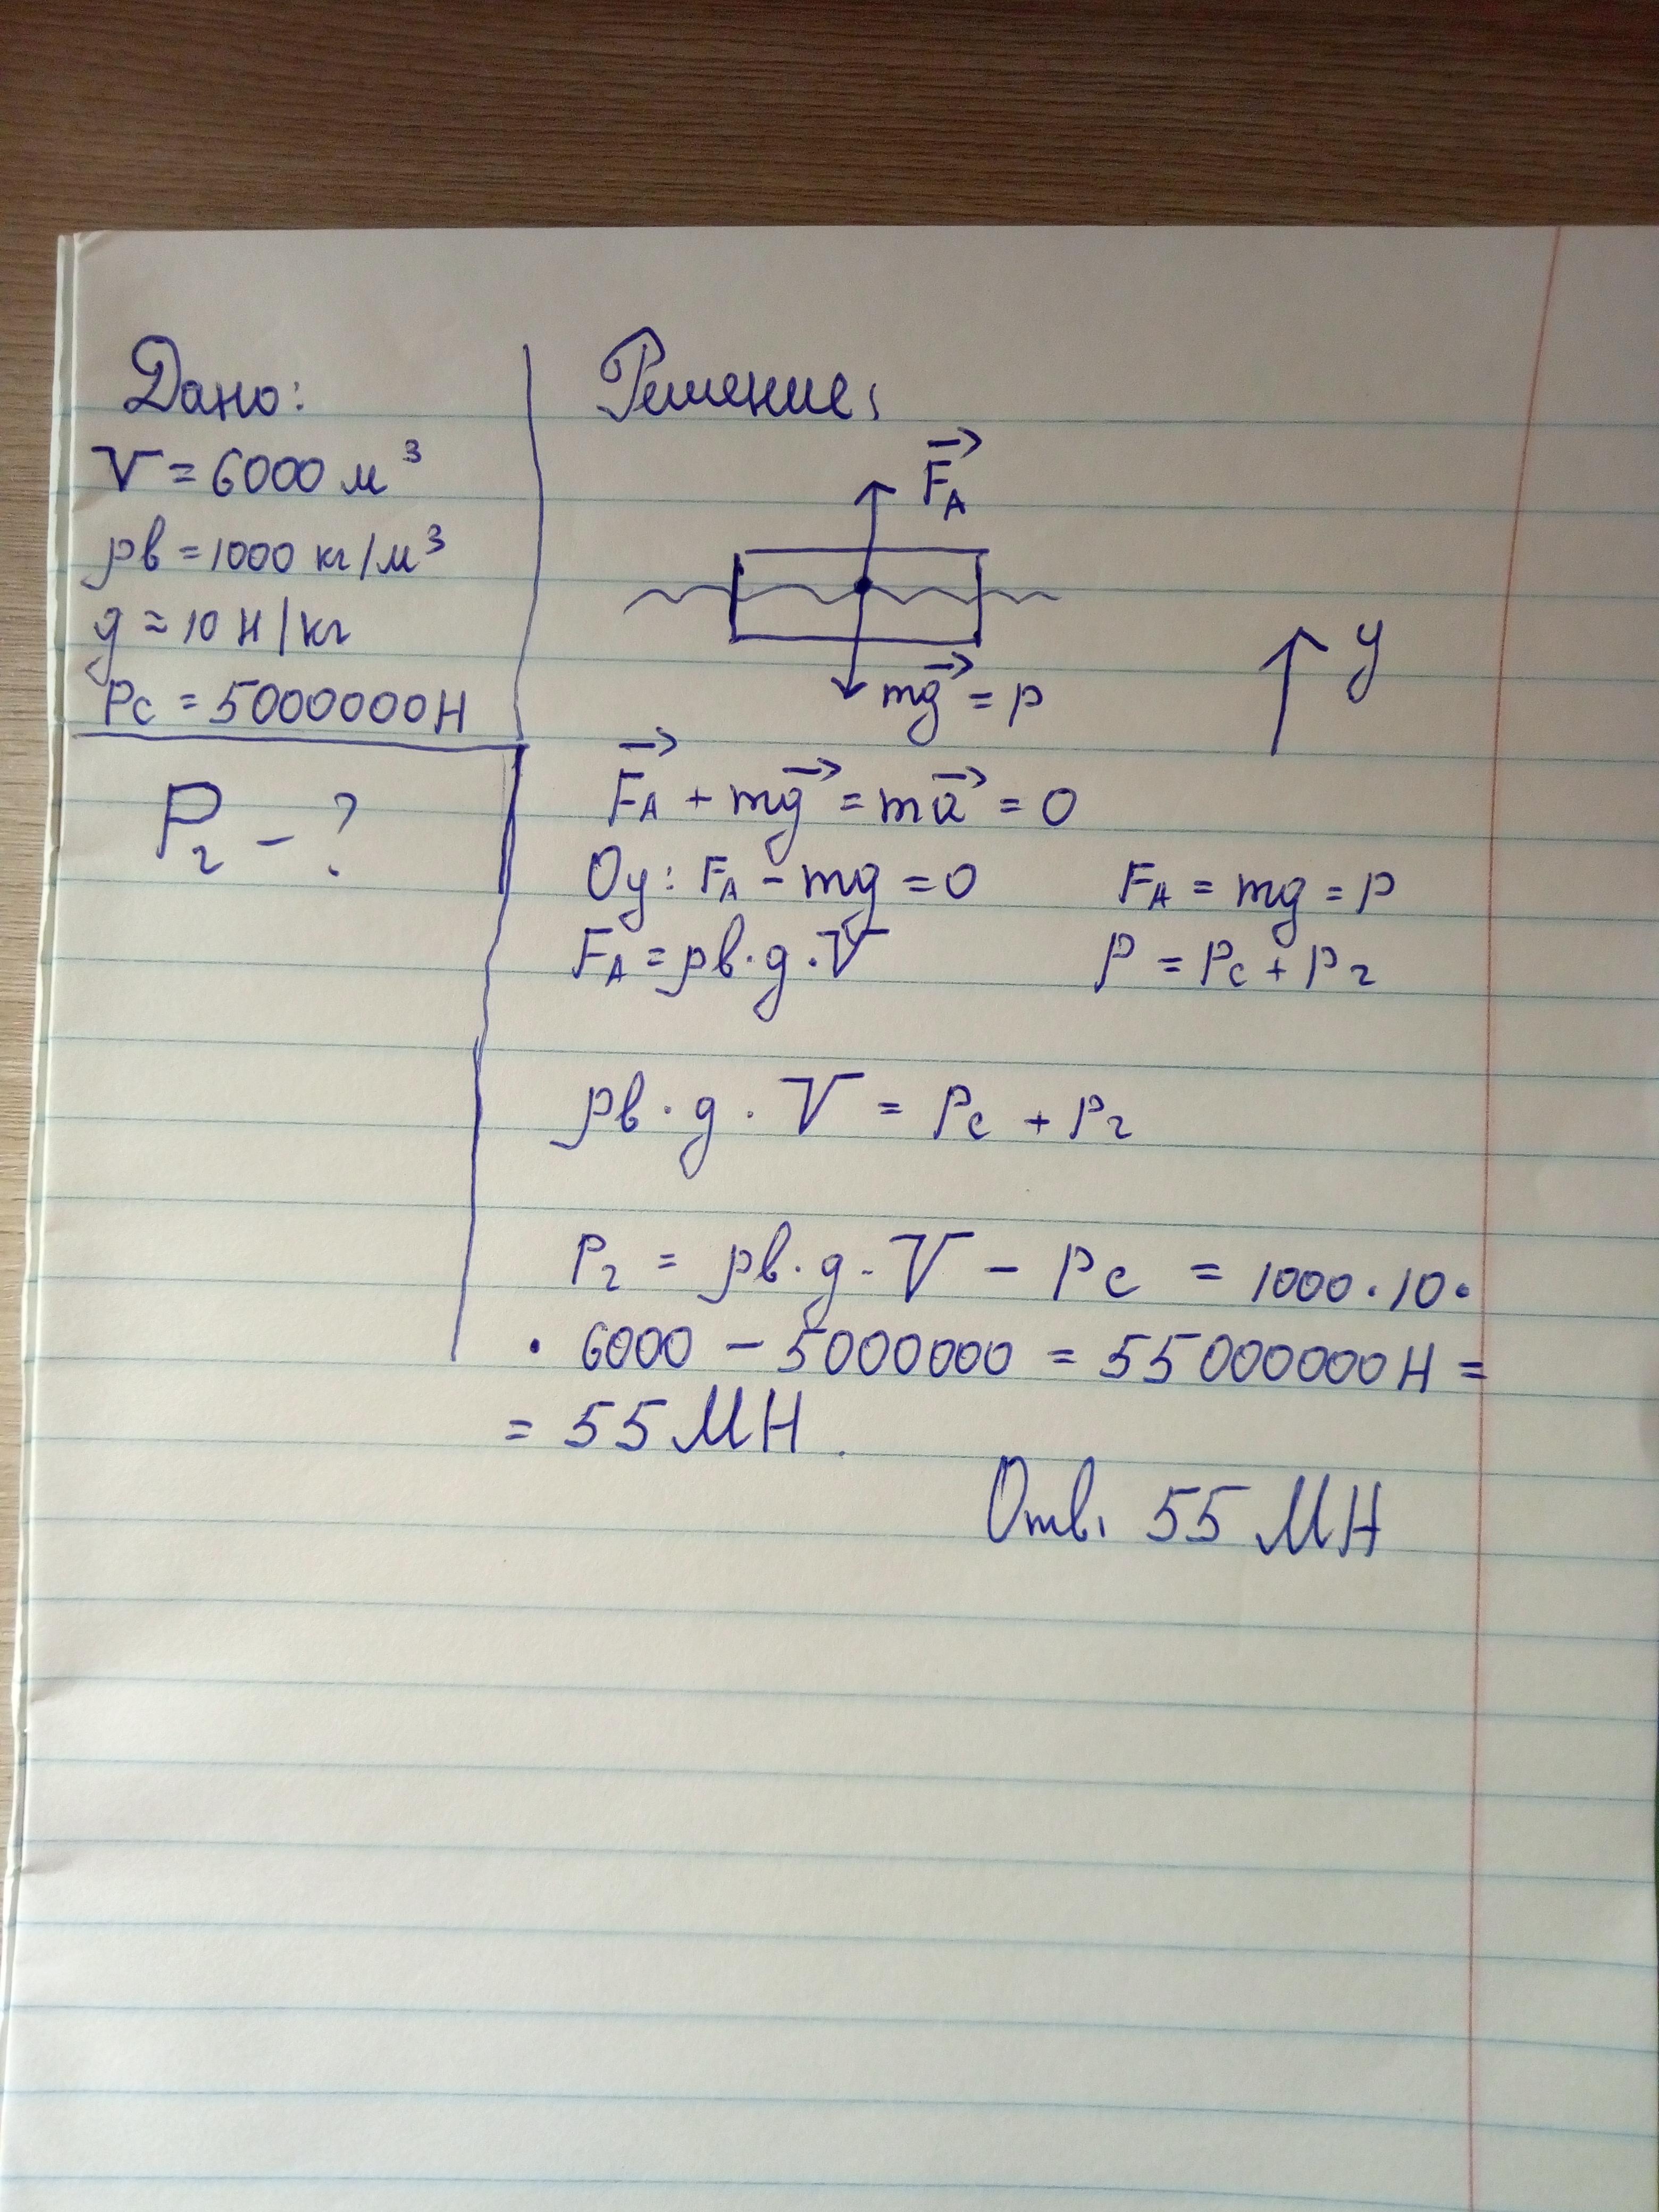 Дано:
V = 6000 м³
ρв = 1000 кг/м³
g = 10 Н/кг
Pс = 5000000Н
Pг - ?
Решение:
F⃗A
mg⃗ = P
y
F⃗A + mg⃗ = ma⃗ = 0
Oy: FA - mg = 0 FA = mg = P
FA = ρв·g·V P = Pс + Pг
ρв · g · V = Pс + Pг
Pг = ρв·g·V - Pс = 1000·10·
· 6000 - 5000000 = 55000000Н =
= 55 МН.
Отв. 55 МН